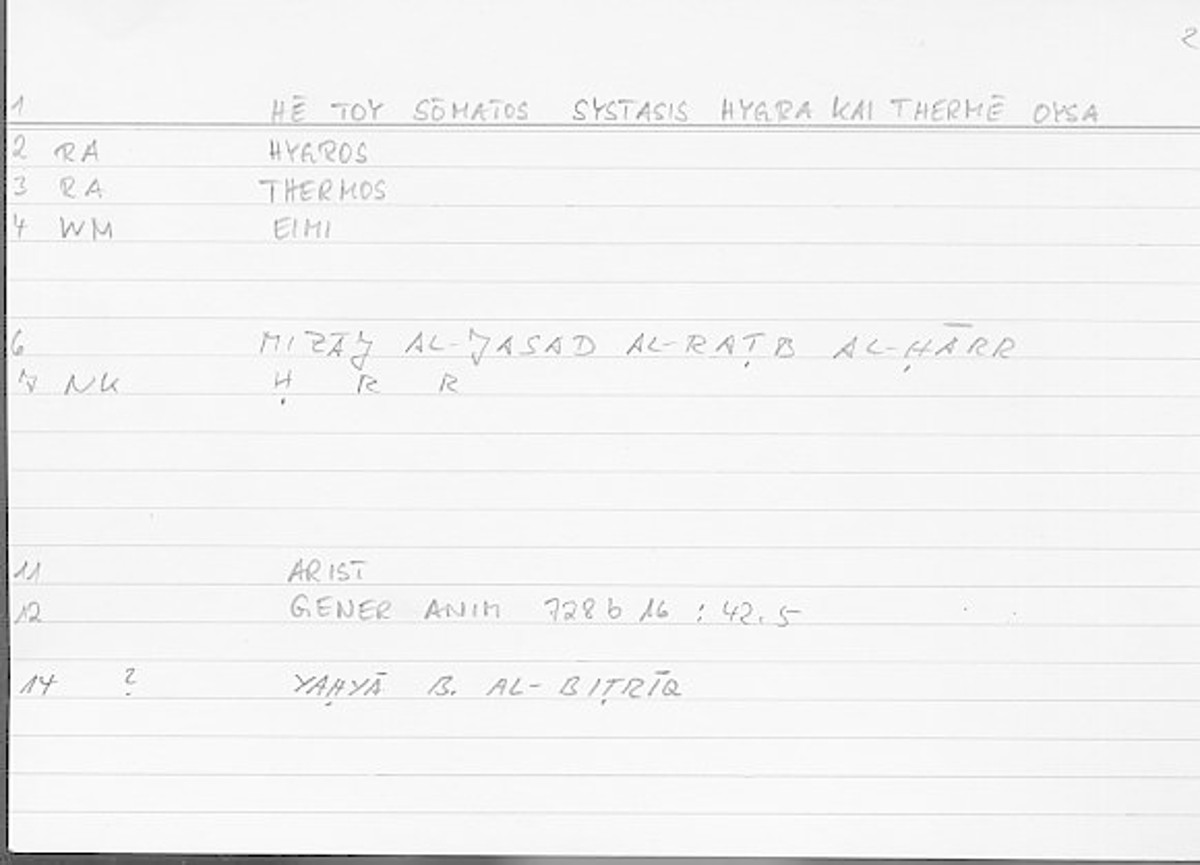 2
1 HĒ TOY SŌMATOS SYSTASIS HYGRA KAI THERMĒ OYSA
2 RA HYGROS
3 RA THERMOS
4 WM EIMI
6 MIZĀJ AL-JASAD AL-RAṬB AL-ḤĀRR
7 NK Ḥ R R
11 ARIST
12 GENER ANIM 728 b 16 : 42.5
14 ? YAḤYĀ B. AL-BIṬRĪQ